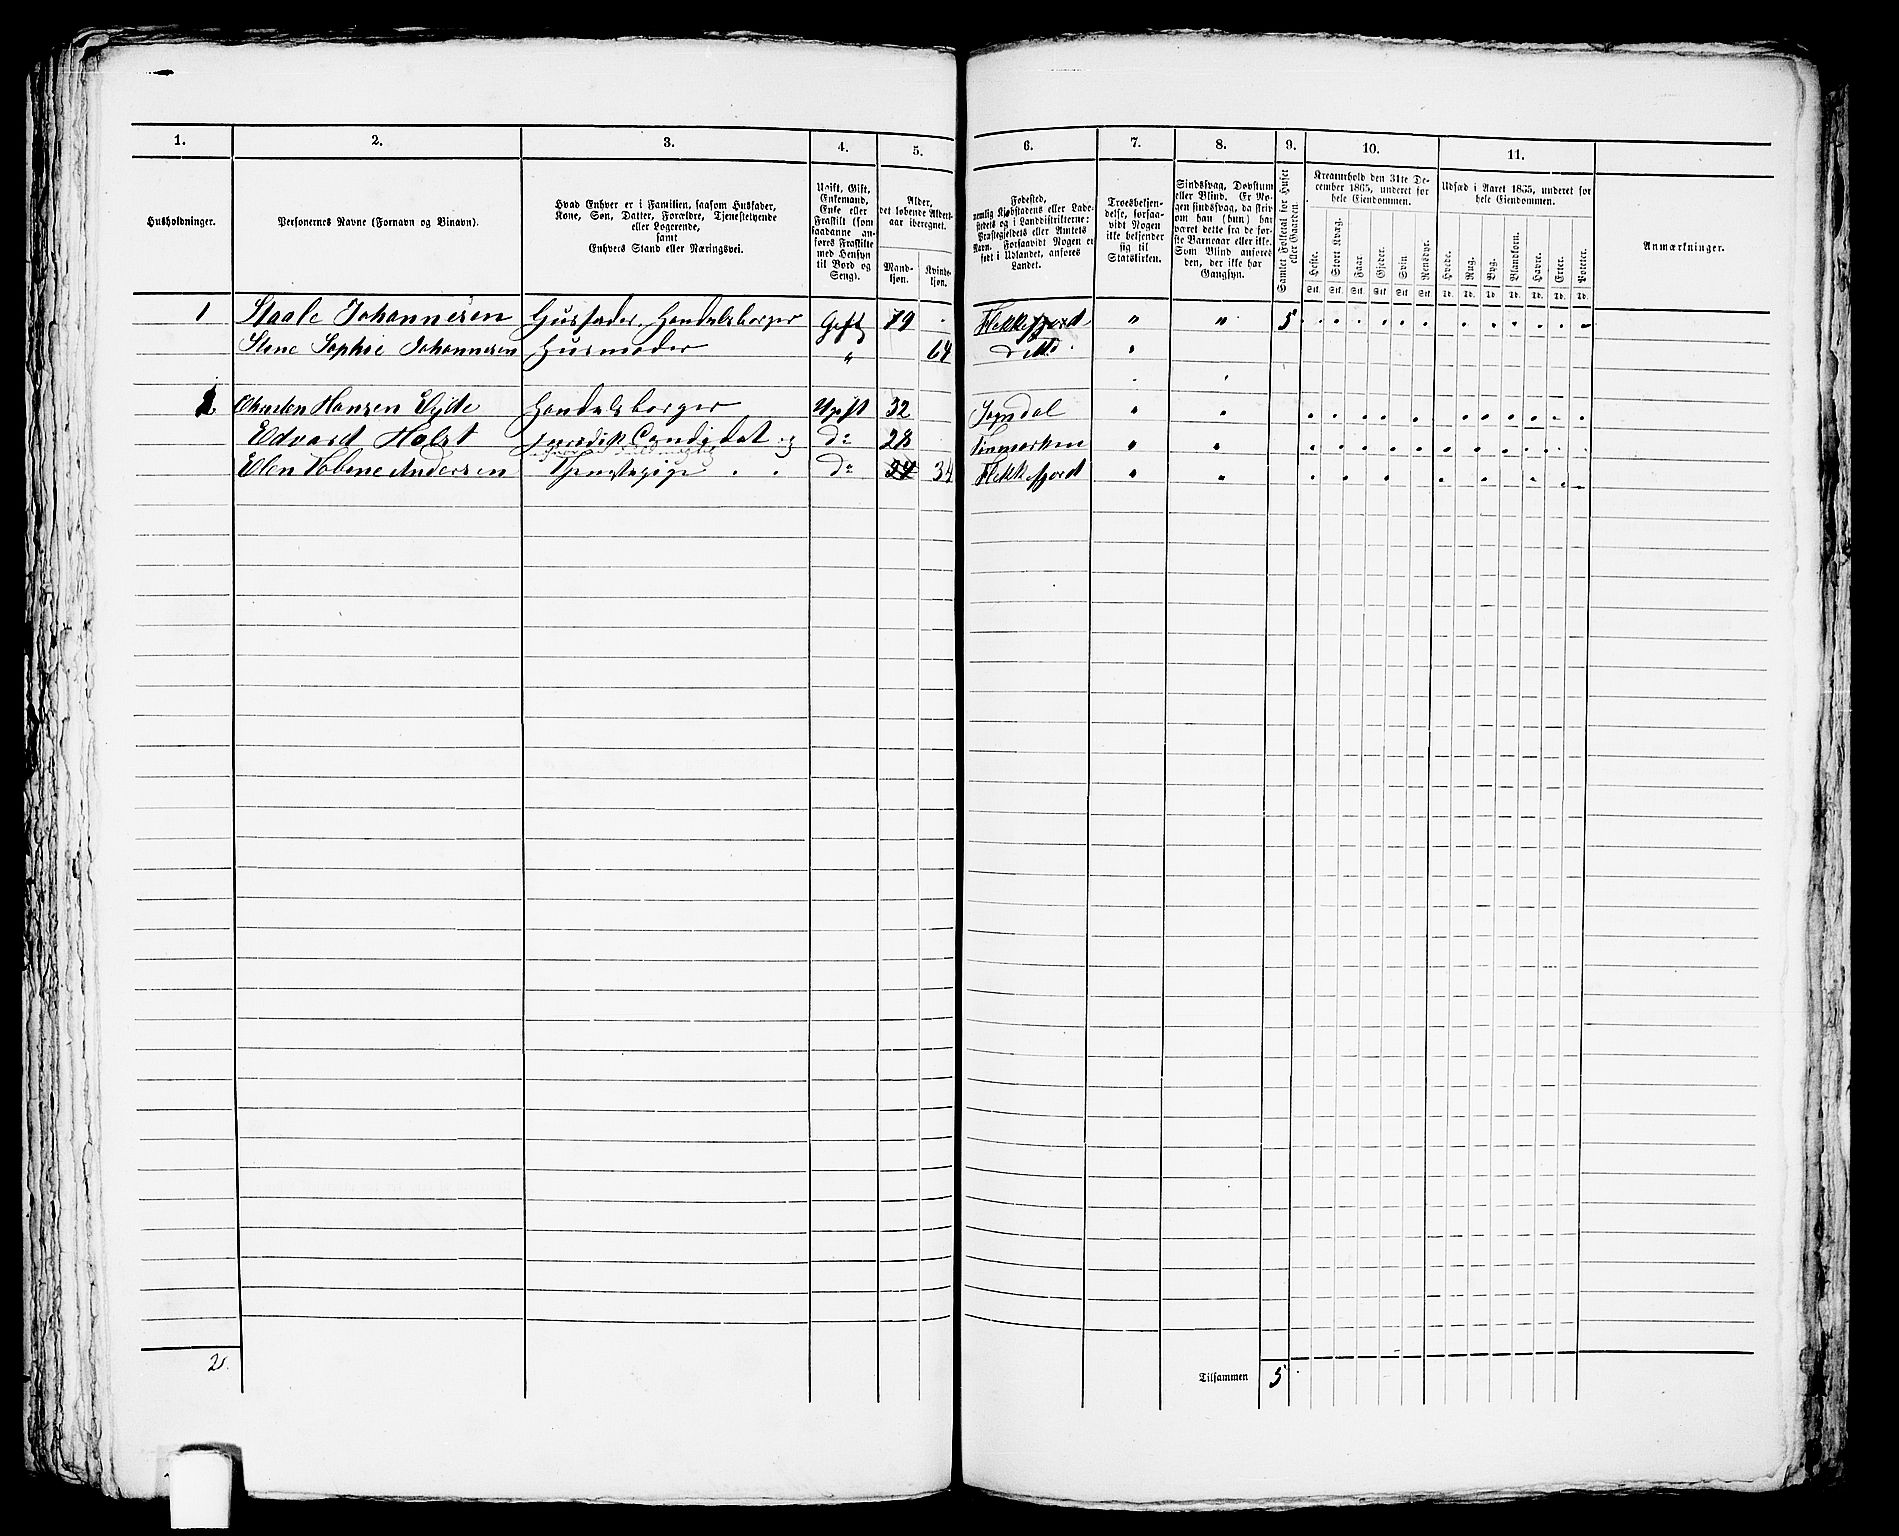 1. 2. 3. 4. 5. 6. 7. 8. 9. 10. 11.
Husholdninger.
Personernes Navne (Fornavn og Binavn).
Hvad Enhver er i Familien, saasom Husfader,
Kone, Søn, Datter, Forældre, Tjenestetyende
eller Logerende,
samt
Enhvers Stand eller Næringsvei.
Ugift, Gift,
Enkemand,
Enke eller
Fraskilt (som
saadanne an-
føres Fraskilte
med Hensyn
til Bord og
Seng).
Alder,
det løbende Alders-
aar iberegnet.
Mand-
kjøn.
Kvinde-
kjøn.
Fødested,
nemlig Kjøbstadens eller Lade-
stedets og i Landdistrikterne:
Præstegjeldets eller Amtets
Navn. Forsaavidt Nogen er
født i Udlandet, anføres
Landet.
Troesbekjen-
delse, forsaa-
vidt Nogen
ikke bekjender
sig til
Statskirken.
Sindssvag, Døvstum
eller Blind. Er No-
gen sindssvag, da skriv
om han (hun) har
været dette fra de før-
ste Barneaar eller ikke.
Som Blind anføres
den, der ikke har
Gangsyn.
Samlet Folketal for Huset
eller Gaarden.
Kreaturhold den 31te De-
cember 1865, underet for
hele Eiendommen.
Heste. Stort Kvæg. Faar. Gjeder. Svin. Rensdyr.
Stk. Stk. Stk. Stk. Stk. Stk.
Udsæd i Aaret 1865, underet for
hele Eiendommen.
Hvede. Rug. Byg. Blandkorn. Havre. Erter. Poteter.
Td. Td. Td. Td. Td. Td. Td.
Anmærkninger.
1 Staale Johannesen Husfader, Handelsborger Gift 79 Flekkefjord " " 5
Stine Sophie Johannesen Husmoder " 64 ditto "
2 Hansen Handelsborger Ugift 32 Sogndal " "
Edvard Holst Juridisk Candidat og do 28 Finmarken " "
Elen Tobine Andersen Tjenestepige do 34 34 Flekkefjord " "
2. Tilsammen 5